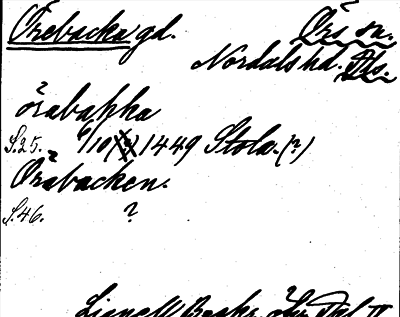 Örebacka gd. Örs sn.
Nordals hd. Dls.
örabakka
S.25. 6/10 1449 Stola.(?)
Örabacken.
S.46. ?
Lignell Beskr. Dal II